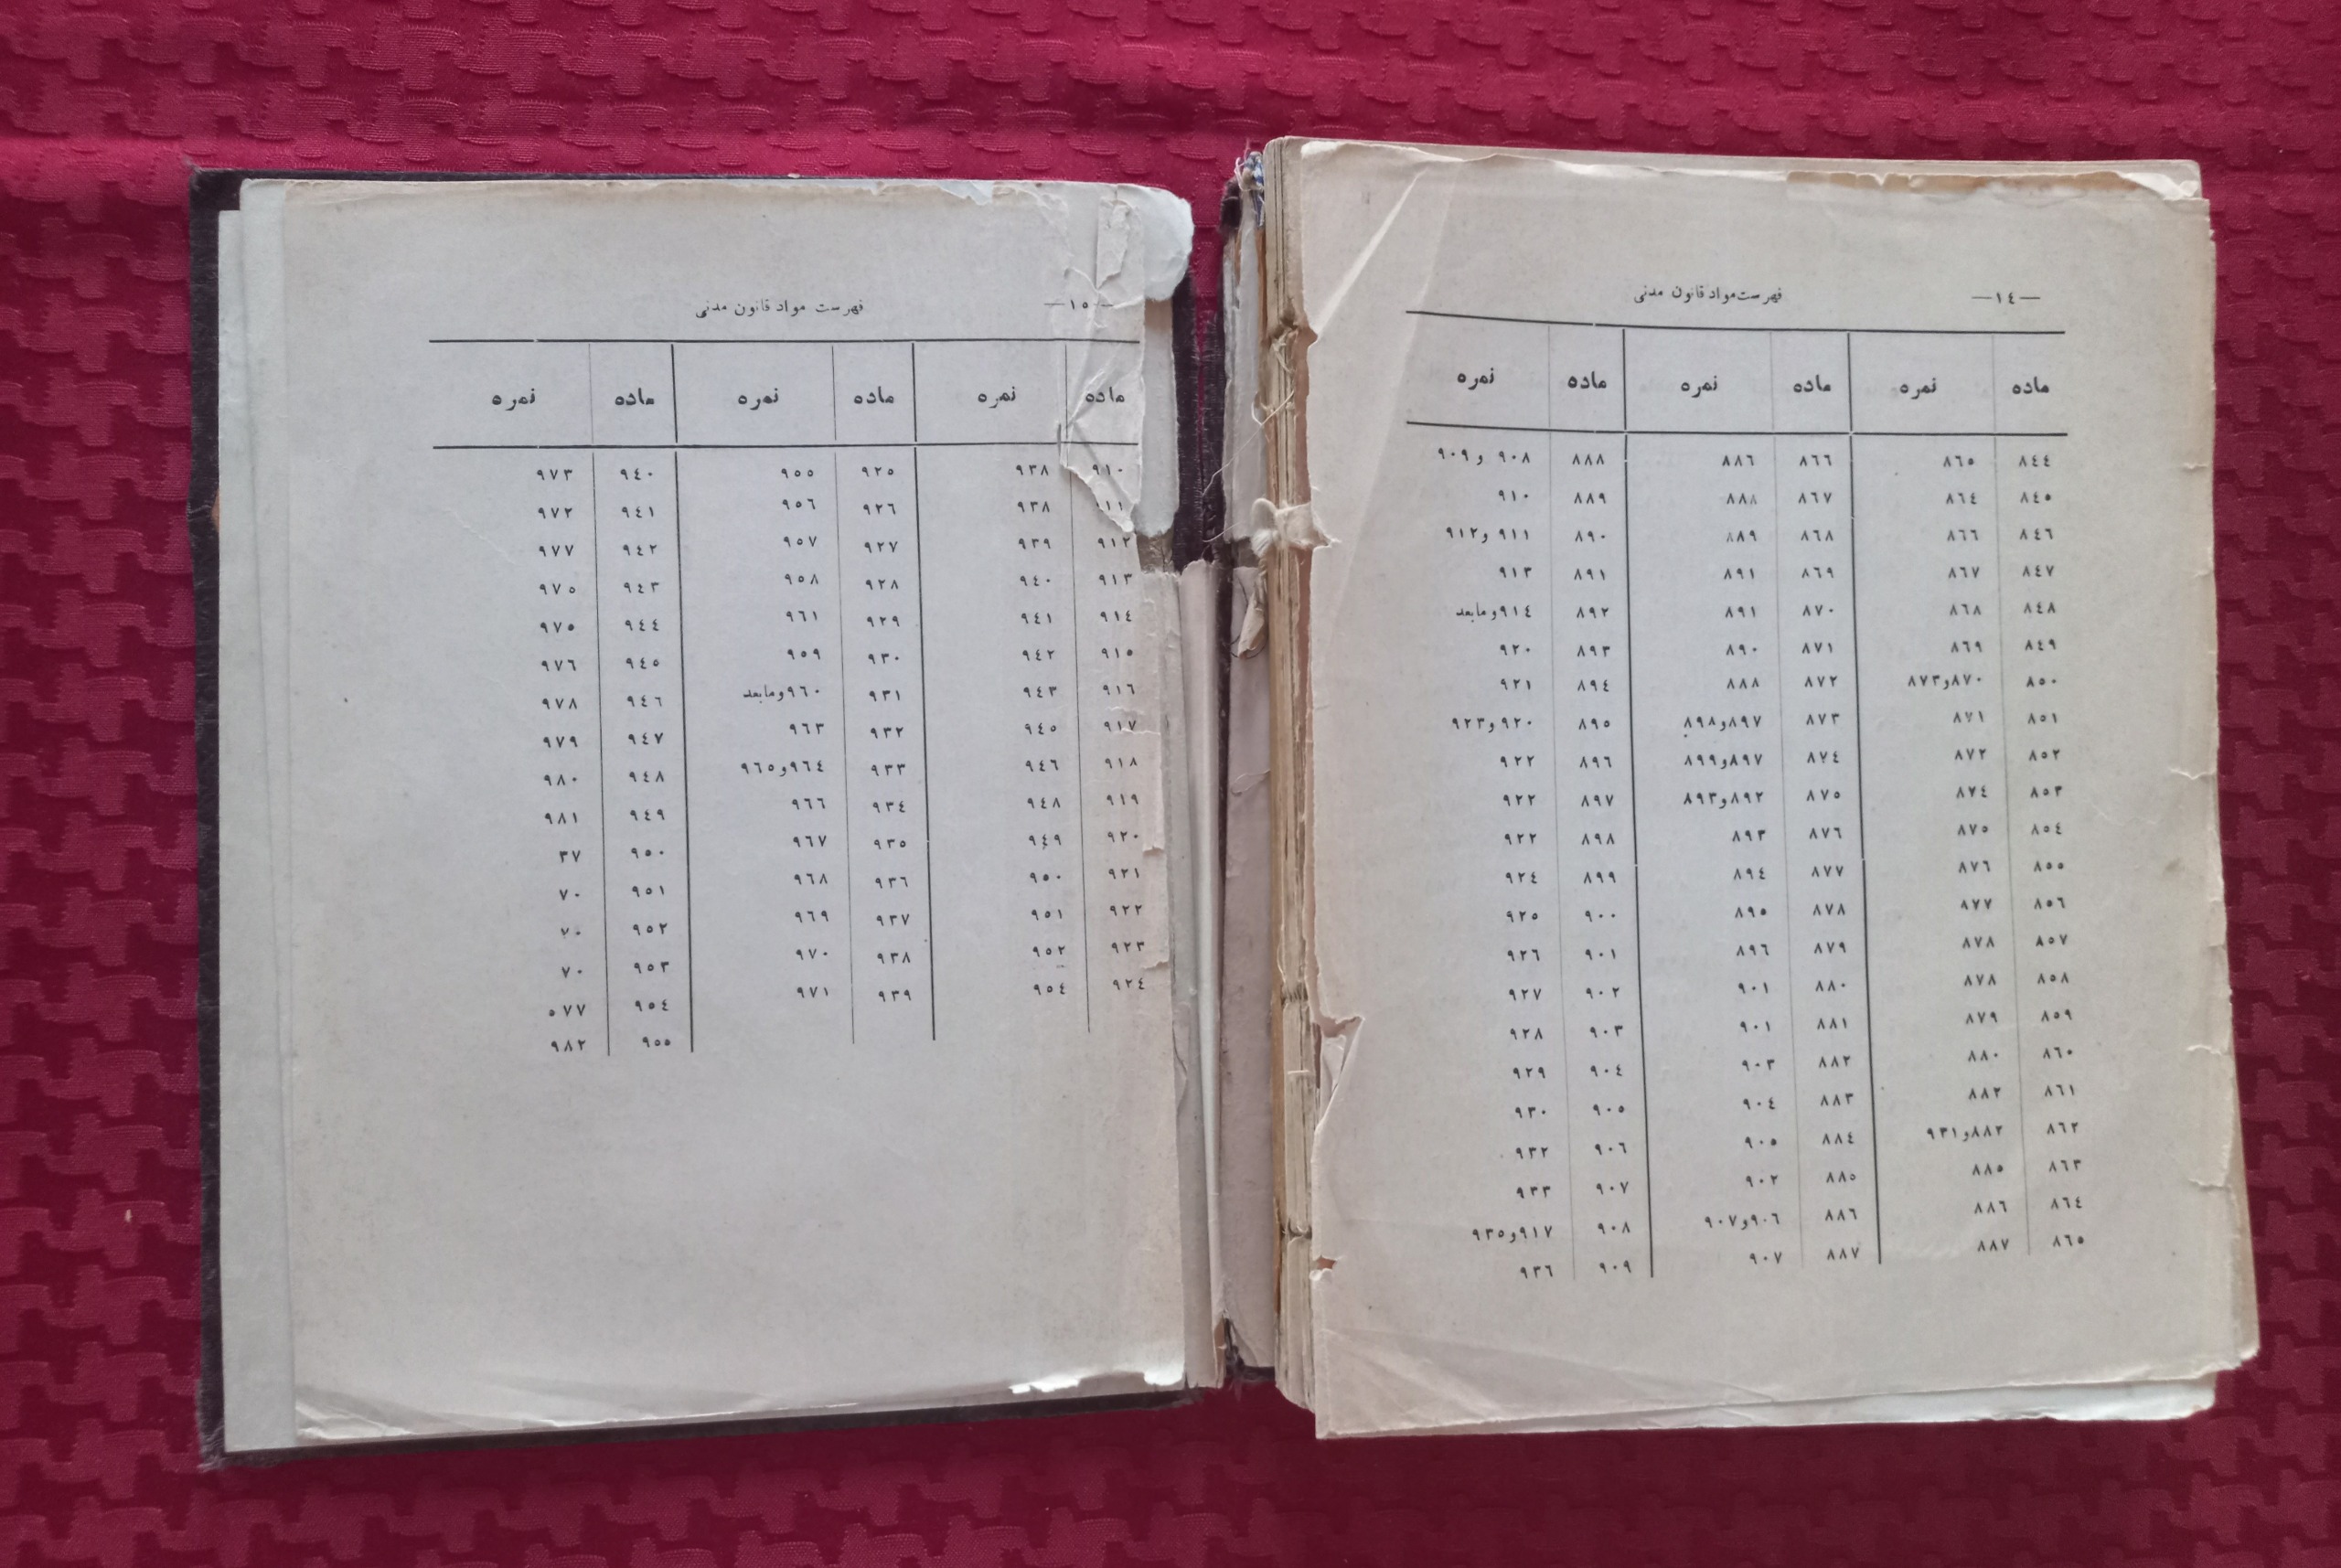 —١٤— فهرست مواد قانون مدنی
ماده نمره ماده نمره ماده نمره
٨٤٤ ٨٦٥ ٨٦٦ ٨٨٦ ٨٨٨ ٩٠٨ و ٩٠٩
٨٤٥ ٨٦٤ ٨٦٧ ٨٨٨ ٨٨٩ ٩١٠
٨٤٦ ٨٦٦ ٨٦٨ ٨٨٩ ٨٩٠ ٩١١ و٩١٢
٨٤٧ ٨٦٧ ٨٦٩ ٨٩١ ٨٩١ ٩١٣
٨٤٨ ٨٦٨ ٨٧٠ ٨٩١ ٨٩٢ ٩١٤ومابعد
٨٤٩ ٨٦٩ ٨٧١ ٨٩٠ ٨٩٣ ٩٢٠
٨٥٠ ٨٧٠و٨٧٣ ٨٧٢ ٨٨٨ ٨٩٤ ٩٢١
٨٥١ ٨٧١ ٨٧٣ ٨٩٧و٨٩٨ ٨٩٥ ٩٢٠و٩٢٣
٨٥٢ ٨٧٢ ٨٧٤ ٨٩٧و٨٩٩ ٨٩٦ ٩٢٢
٨٥٣ ٨٧٤ ٨٧٥ ٨٩٢و٨٩٣ ٨٩٧ ٩٢٢
٨٥٤ ٨٧٥ ٨٧٦ ٨٩٣ ٨٩٨ ٩٢٢
٨٥٥ ٨٧٦ ٨٧٧ ٨٩٤ ٨٩٩ ٩٢٤
٨٥٦ ٨٧٧ ٨٧٨ ٨٩٥ ٩٠٠ ٩٢٥
٨٥٧ ٨٧٨ ٨٧٩ ٨٩٦ ٩٠١ ٩٢٦
٨٥٨ ٨٧٨ ٨٨٠ ٩٠١ ٩٠٢ ٩٢٧
٨٥٩ ٨٧٩ ٨٨١ ٩٠١ ٩٠٣ ٩٢٨
٨٦٠ ٨٨٠ ٨٨٢ ٩٠٣ ٩٠٤ ٩٢٩
٨٦١ ٨٨٢ ٨٨٣ ٩٠٤ ٩٠٥ ٩٣٠
٨٦٢ ٨٨٢و٩٣١ ٨٨٤ ٩٠٥ ٩٠٦ ٩٣٢
٨٦٣ ٨٨٥ ٨٨٥ ٩٠٢ ٩٠٧ ٩٣٣
٨٦٤ ٨٨٦ ٨٨٦ ٩٠٦و٩٠٧ ٩٠٨ ٩١٧و٩٣٥
٨٦٥ ٨٨٧ ٨٨٧ ٩٠٧ ٩٠٩ ٩٣٦
—١٥— فهرست مواد قانون مدنی
ماده نمره ماده نمره ماده نمره
٩١٠ ٩٣٨ ٩٢٥ ٩٥٥ ٩٤٠ ٩٧٣
٩٣٨ ٩٢٦ ٩٥٦ ٩٤١ ٩٧٢
٩١٢ ٩٣٩ ٩٢٧ ٩٥٧ ٩٤٢ ٩٧٧
٩١٣ ٩٤٠ ٩٢٨ ٩٥٨ ٩٤٣ ٩٧٥
٩١٤ ٩٤١ ٩٢٩ ٩٦١ ٩٤٤ ٩٧٥
٩١٥ ٩٤٢ ٩٣٠ ٩٥٩ ٩٤٥ ٩٧٦
٩١٦ ٩٤٣ ٩٣١ ٩٦٠ومابعد ٩٤٦ ٩٧٨
٩١٧ ٩٤٥ ٩٣٢ ٩٦٣ ٩٤٧ ٩٧٩
٩١٨ ٩٤٦ ٩٣٣ ٩٦٤و٩٦٥ ٩٤٨ ٩٨٠
٩١٩ ٩٤٨ ٩٣٤ ٩٦٦ ٩٤٩ ٩٨١
٩٢٠ ٩٤٩ ٩٣٥ ٩٦٧ ٩٥٠ ٣٧
٩٢١ ٩٥٠ ٩٣٦ ٩٦٨ ٩٥١ ٧٠
٩٢٢ ٩٥١ ٩٣٧ ٩٦٩ ٩٥٢ ٧٠
٩٢٣ ٩٥٢ ٩٣٨ ٩٧٠ ٩٥٣ ٧٠
٩٢٤ ٩٥٤ ٩٣٩ ٩٧١ ٩٥٤ ٥٧٧
٩٥٥ ٩٨٢